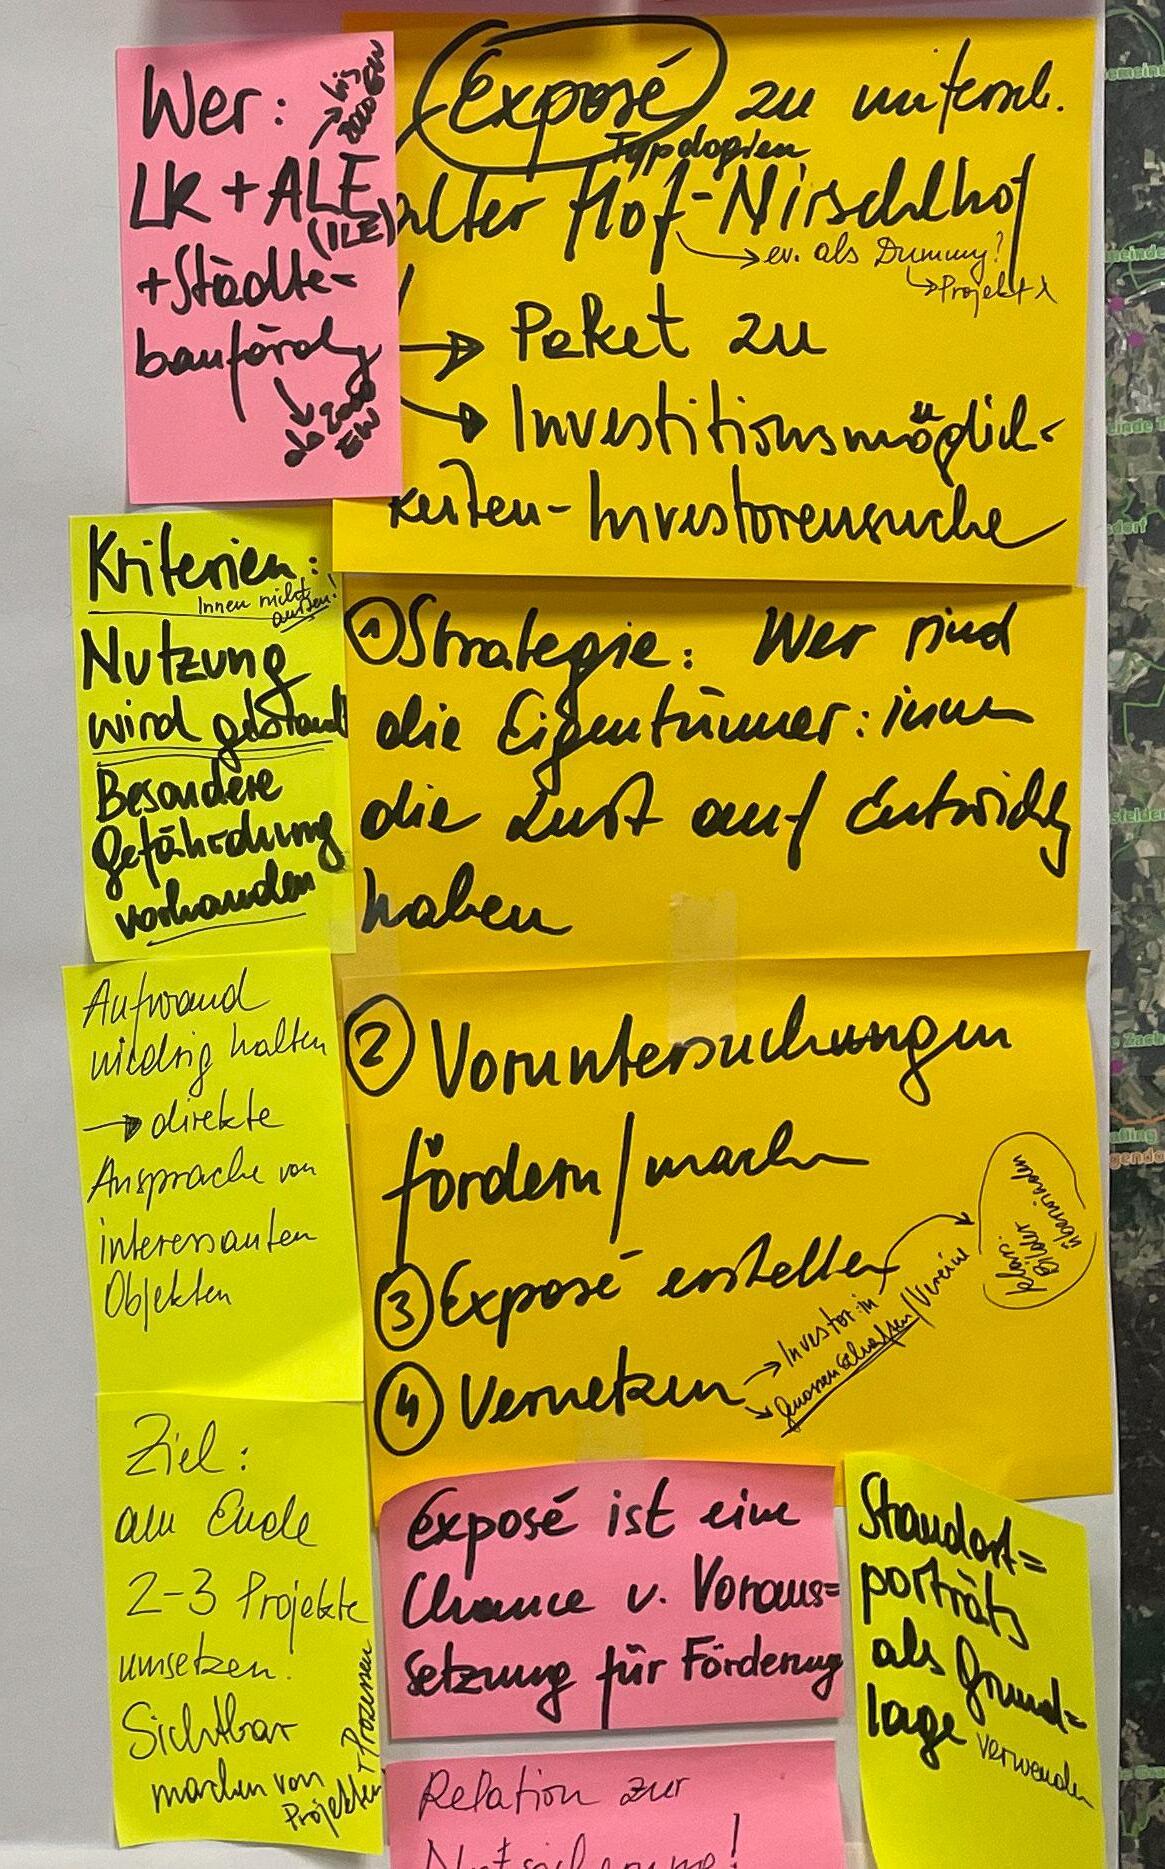 Wer:
bis
2000 EW
LK + ALE
(ILE)
+ Städte=
bauförd
ab 2000
EW
Exposé zu untersch.
Typologien
alter Hof - Nirschlhof
ev. als Dummy?
Projekt
→ Paket zu
→ Investitionsmöglich-
keiten - Investorensuche
Kriterien:
Innen nicht
außen!
Nutzung
wird gebraucht
Besondere
Gefährdung
vorhanden
① Strategie: Wer sind
die Eigentümer:innen
die Lust auf Entwicklg
haben
Aufwand
niedrig halten
→ direkte
Ansprache von
interessanten
Objekten
② Voruntersuchungen
fördern / machen
③ Exposé erstellen
④ Vernetzen
→ Investor:in
→ Genossenschaften / Vereine
Bilder
überwinden
Ziel:
am Ende
2-3 Projekte
umsetzen.
Sichtbar
machen von
Projekten
+ Prozessen
Exposé ist eine
Chance v. Voraus=
setzung für Förderung
Standort=
porträts
als Grund=
lage verwenden
Relation zur